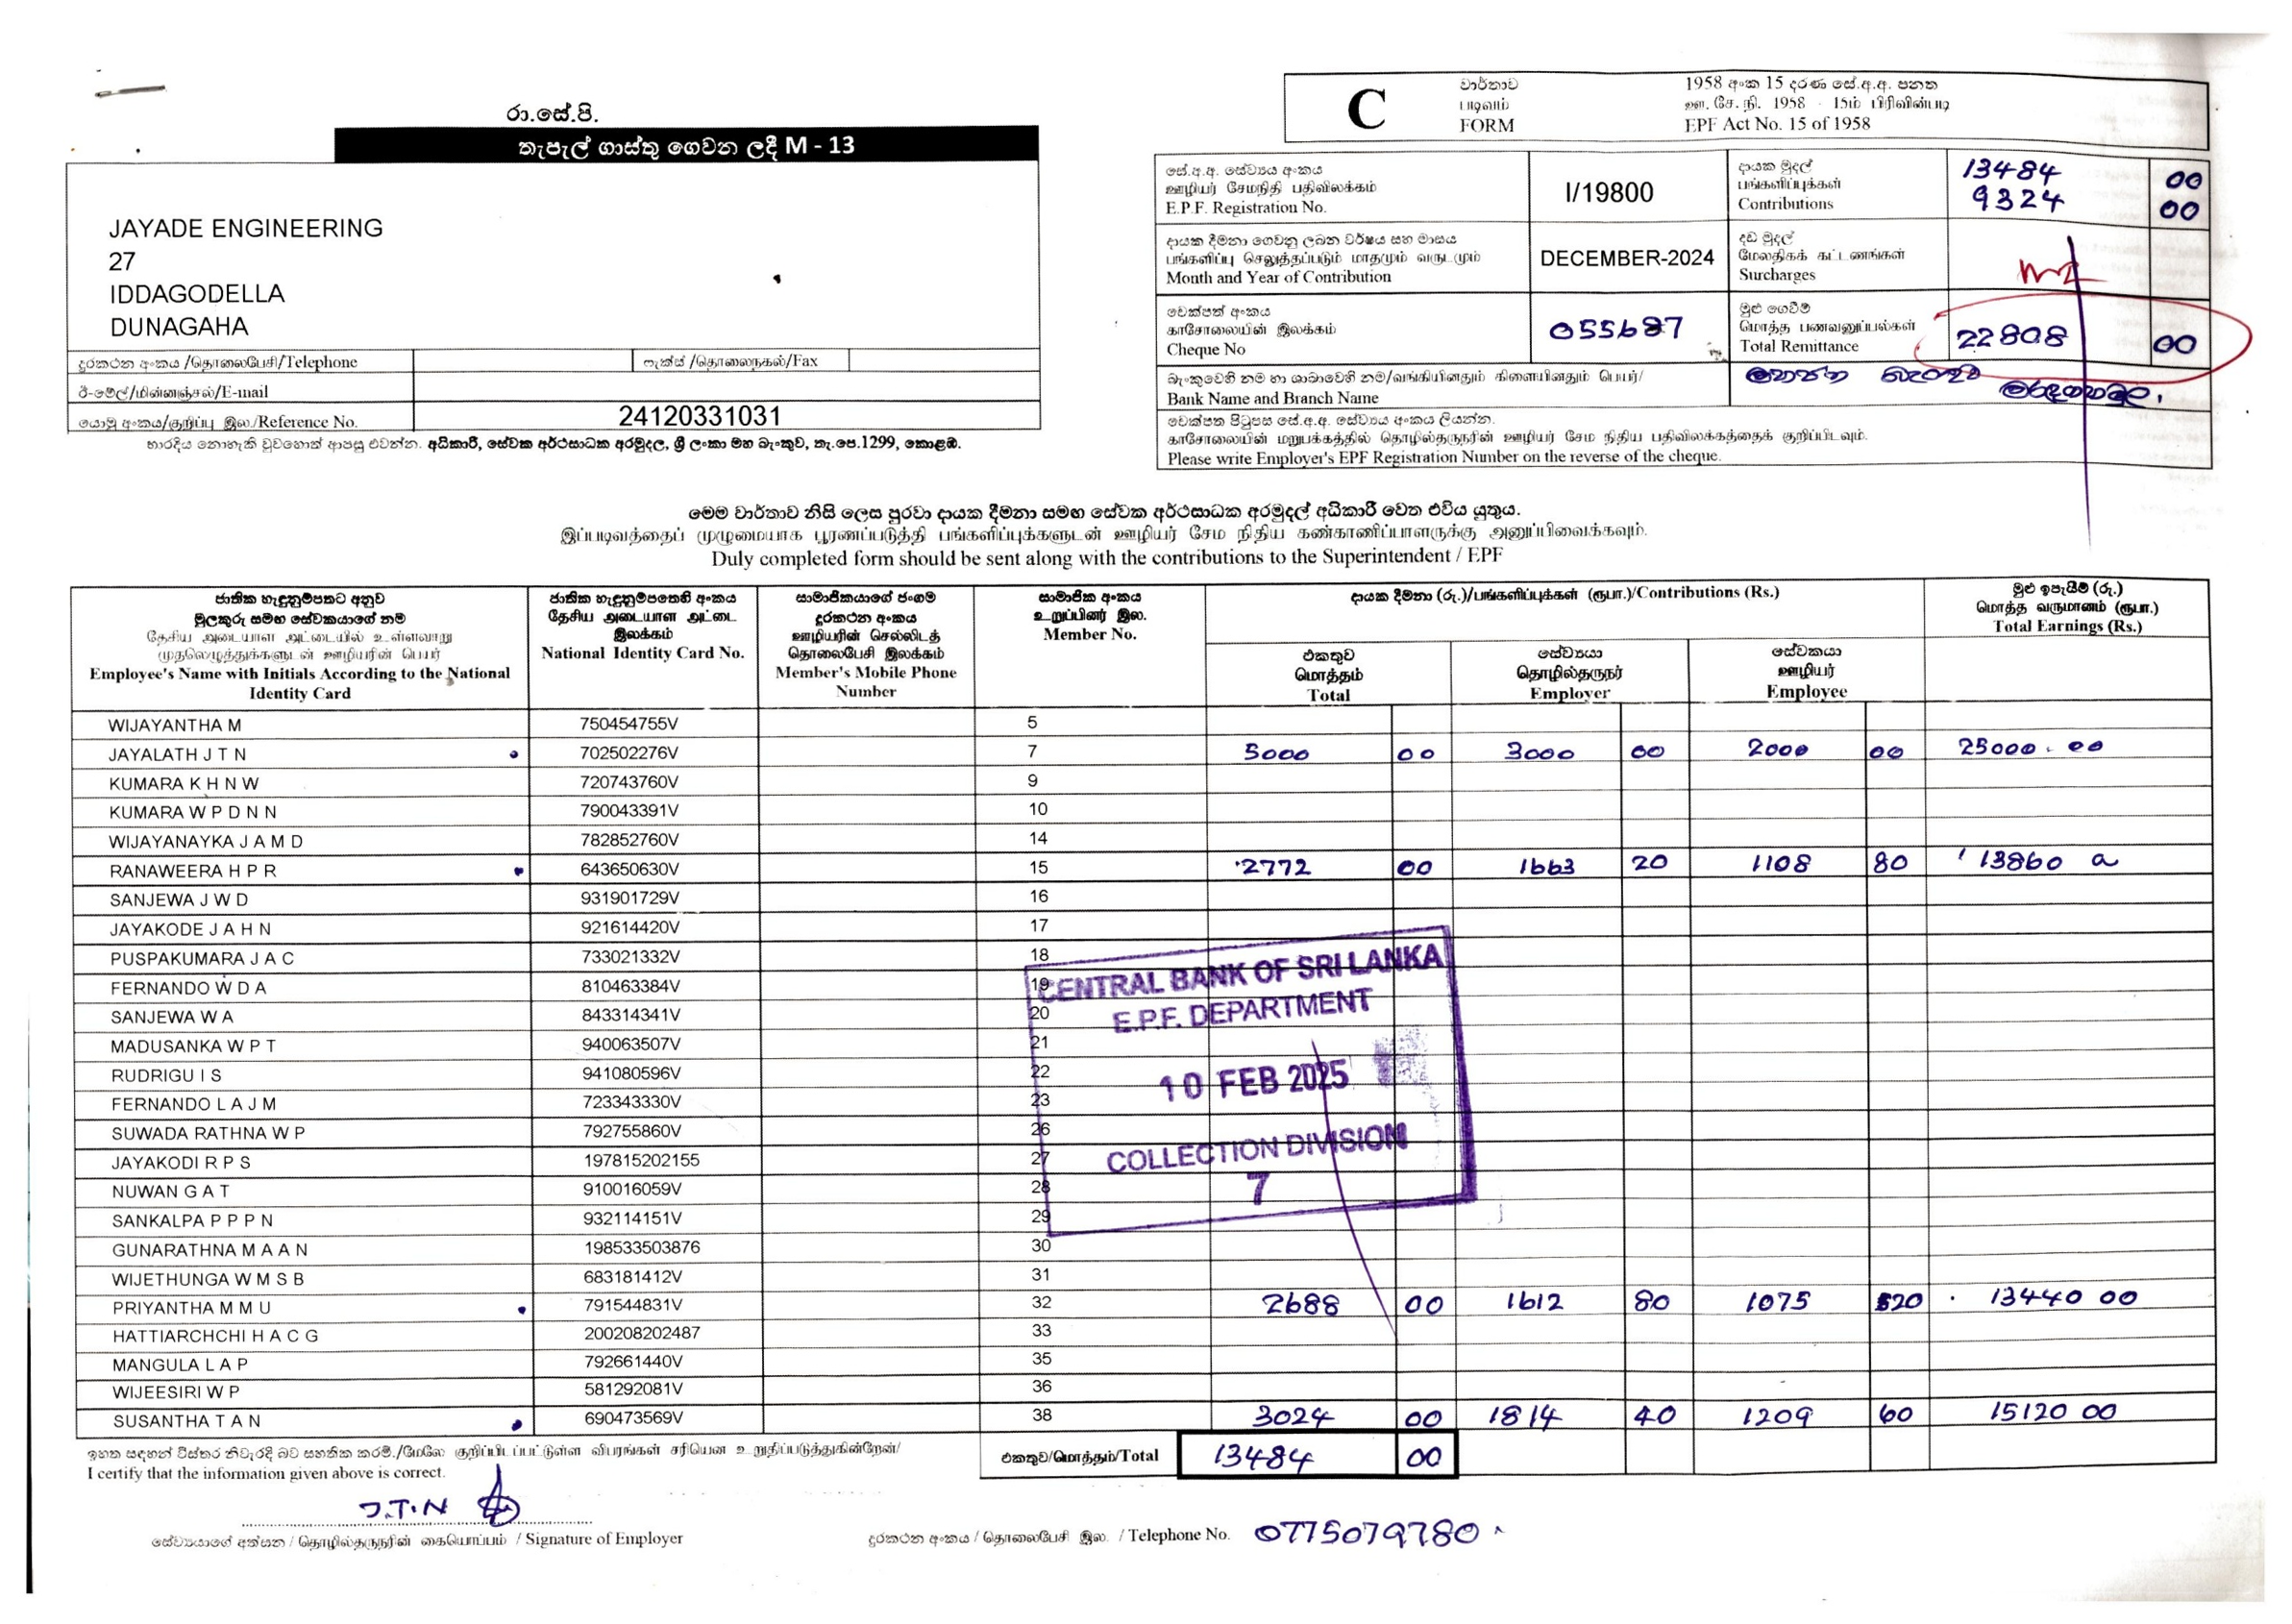 රා.සේ.පි.
තැපැල් ගාස්තු ගෙවන ලදී M - 13
JAYADE ENGINEERING
27
IDDAGODELLA
DUNAGAHA
දුරකථන අංකය /தொலைபேசி/Telephone ෆැක්ස් /தொலைநகல்/Fax
ඊ-මේල්/மின்னஞ்சல்/E-mail
යොමු අංකය/குறிப்பு இல./Reference No. 24120331031
භාරදිය නොහැකි වුවහොත් ආපසු එවන්න. අධිකාරී, සේවක අර්ථසාධක අරමුදල, ශ්‍රී ලංකා මහ බැංකුව, තැ.පෙ.1299, කොළඹ.
C
වාර්තාව
படிவம்
FORM
1958 අංක 15 දරණ සේ.අ.අ. පනත
ஊ. சே. நி. 1958 - 15ம் பிரிவின்படி
EPF Act No. 15 of 1958
සේ.අ.අ. සේව්‍යය අංකය
ஊழியர் சேமநிதி பதிவிலக்கம்
E.P.F. Registration No.
I/19800
දායක මුදල්
பங்களிப்புக்கள்
Contributions
13484 00
9324 00
දායක දීමනා ගෙවනු ලබන වර්ෂය සහ මාසය
பங்களிப்பு செலுத்தப்படும் மாதமும் வருடமும்
Month and Year of Contribution
DECEMBER-2024
දඩ මුදල්
மேலதிகக் கட்டணங்கள்
Surcharges
චෙක්පත් අංකය
காசோலையின் இலக்கம்
Cheque No
055687
මුළු ගෙවීම්
மொத்த பணவனுப்பல்கள்
Total Remittance
22808 00
බැංකුවෙහි නම හා ශාඛාවෙහි නම/வங்கியினதும் கிளையினதும் பெயர்/
Bank Name and Branch Name
මහජන බැංකුව
මරදගහමුල.
චෙක්පත පිටුපස සේ.අ.අ. සේව්‍යය අංකය ලියන්න.
காசோலையின் மறுபக்கத்தில் தொழில்தருநரின் ஊழியர் சேம நிதிய பதிவிலக்கத்தைக் குறிப்பிடவும்.
Please write Employer's EPF Registration Number on the reverse of the cheque.
මෙම වාර්තාව නිසි ලෙස පුරවා දායක දීමනා සමඟ සේවක අර්ථසාධක අරමුදල් අධිකාරී වෙත එවිය යුතුය.
இப்படிவத்தைப் முழுமையாக பூரணப்படுத்தி பங்களிப்புக்களுடன் ஊழியர் சேம நிதிய கண்காணிப்பாளருக்கு அனுப்பிவைக்கவும்.
Duly completed form should be sent along with the contributions to the Superintendent / EPF
ජාතික හැඳුනුම්පතට අනුව
මුලකුරු සමඟ සේවකයාගේ නම
தேசிய அடையாள அட்டையில் உள்ளவாறு
முதலெழுத்துக்களுடன் ஊழியரின் பெயர்
Employee's Name with Initials According to the National
Identity Card
ජාතික හැඳුනුම්පතෙහි අංකය
தேசிய அடையாள அட்டை
இலக்கம்
National Identity Card No.
සාමාජිකයාගේ ජංගම
දුරකථන අංකය
ஊழியரின் செல்லிடத்
தொலைபேசி இலக்கம்
Member's Mobile Phone
Number
සාමාජික අංකය
உறுப்பினர் இல.
Member No.
දායක දීමනා (රු.)/பங்களிப்புக்கள் (ரூபா.)/Contributions (Rs.)
එකතුව
மொத்தம்
Total
සේව්‍යයා
தொழில்தருநர்
Employer
සේවකයා
ஊழியர்
Employee
මුළු ඉපැයීම් (රු.)
மொத்த வருமானம் (ரூபா.)
Total Earnings (Rs.)
WIJAYANTHA M 750454755V 5
JAYALATH J T N 702502276V 7 5000 00 3000 00 2000 00 25000.00
KUMARA K H N W 720743760V 9
KUMARA W P D N N 790043391V 10
WIJAYANAYKA J A M D 782852760V 14
RANAWEERA H P R 643650630V 15 2772 00 1663 20 1108 80 13860
SANJEWA J W D 931901729V 16
JAYAKODE J A H N 921614420V 17
PUSPAKUMARA J A C 733021332V 18
FERNANDO W D A 810463384V 19
SANJEWA W A 843314341V 20
MADUSANKA W P T 940063507V 21
RUDRIGU I S 941080596V 22
FERNANDO L A J M 723343330V 23
SUWADA RATHNA W P 792755860V 26
JAYAKODI R P S 197815202155 27
NUWAN G A T 910016059V 28
SANKALPA P P P N 932114151V 29
GUNARATHNA M A A N 198533503876 30
WIJETHUNGA W M S B 683181412V 31
PRIYANTHA M M U 791544831V 32 2688 00 1612 80 1075 20 13440 00
HATTIARCHCHI H A C G 200208202487 33
MANGULA L A P 792661440V 35
WIJEESIRI W P 581292081V 36
SUSANTHA T A N 690473569V 38 3024 00 1814 40 1209 60 15120 00
CENTRAL BANK OF SRI LANKA
E.P.F. DEPARTMENT
10 FEB 2025
COLLECTION DIVISION
7
ඉහත සඳහන් විස්තර නිවැරදි බව සහතික කරමි./மேலே குறிப்பிடப்பட்டுள்ள விபரங்கள் சரியென உறுதிப்படுத்துகின்றேன்/
I certify that the information given above is correct.
එකතුව/மொத்தம்/Total 13484 00
J.T.N
සේව්‍යයාගේ අත්සන / தொழில்தருநரின் கையொப்பம் / Signature of Employer
දුරකථන අංකය / தொலைபேசி இல. / Telephone No. 0775079780